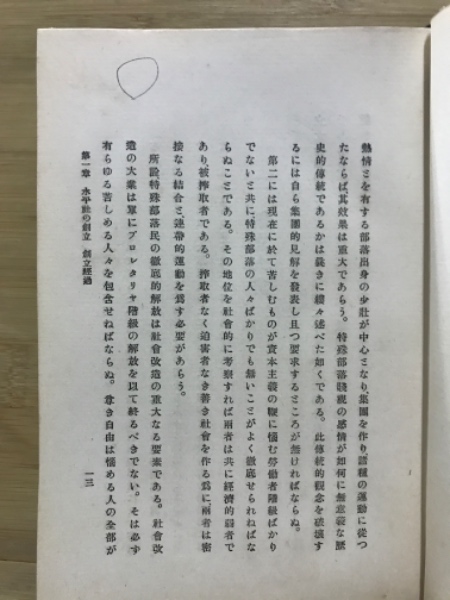 熱情とを有する部落出身の少壯が中心となり、集團を作り、諸種の運動に從つ
たならば其效果は重大であらう。特殊部落賤視の感情が如何に無意義な歷
史的傳統であるかは曩きに縷々述べた如くである。此傳統的觀念を破壞す
るには自ら集團的見解を發表し且つ要求するところが無ければならぬ。
第二には現在に於て苦しむものが資本主義の鞭に惱む勞働者階級ばかり
でないと共に、特殊部落の人々ばかりでも無いことがよく徹底せられねばな
らぬことである。その地位を社會的に考察すれば兩者は共に經濟的弱者で
あり、被搾取者である。搾取者なく迫害者なき善き社會を作る爲に兩者は密
接なる結合と、連帶的運動を爲す必要があらう。
所詮、特殊部落民の徹底的解放は社會改造の重大なる要素である。社會改
造の大業は單にプロレタリヤ階級の解放を以て終るべきでない。そは必ず
有らゆる苦しめる人々を包含せねばならぬ。尊き自由は惱める人の全部が
第一章 水平社の創立 創立經過
一三